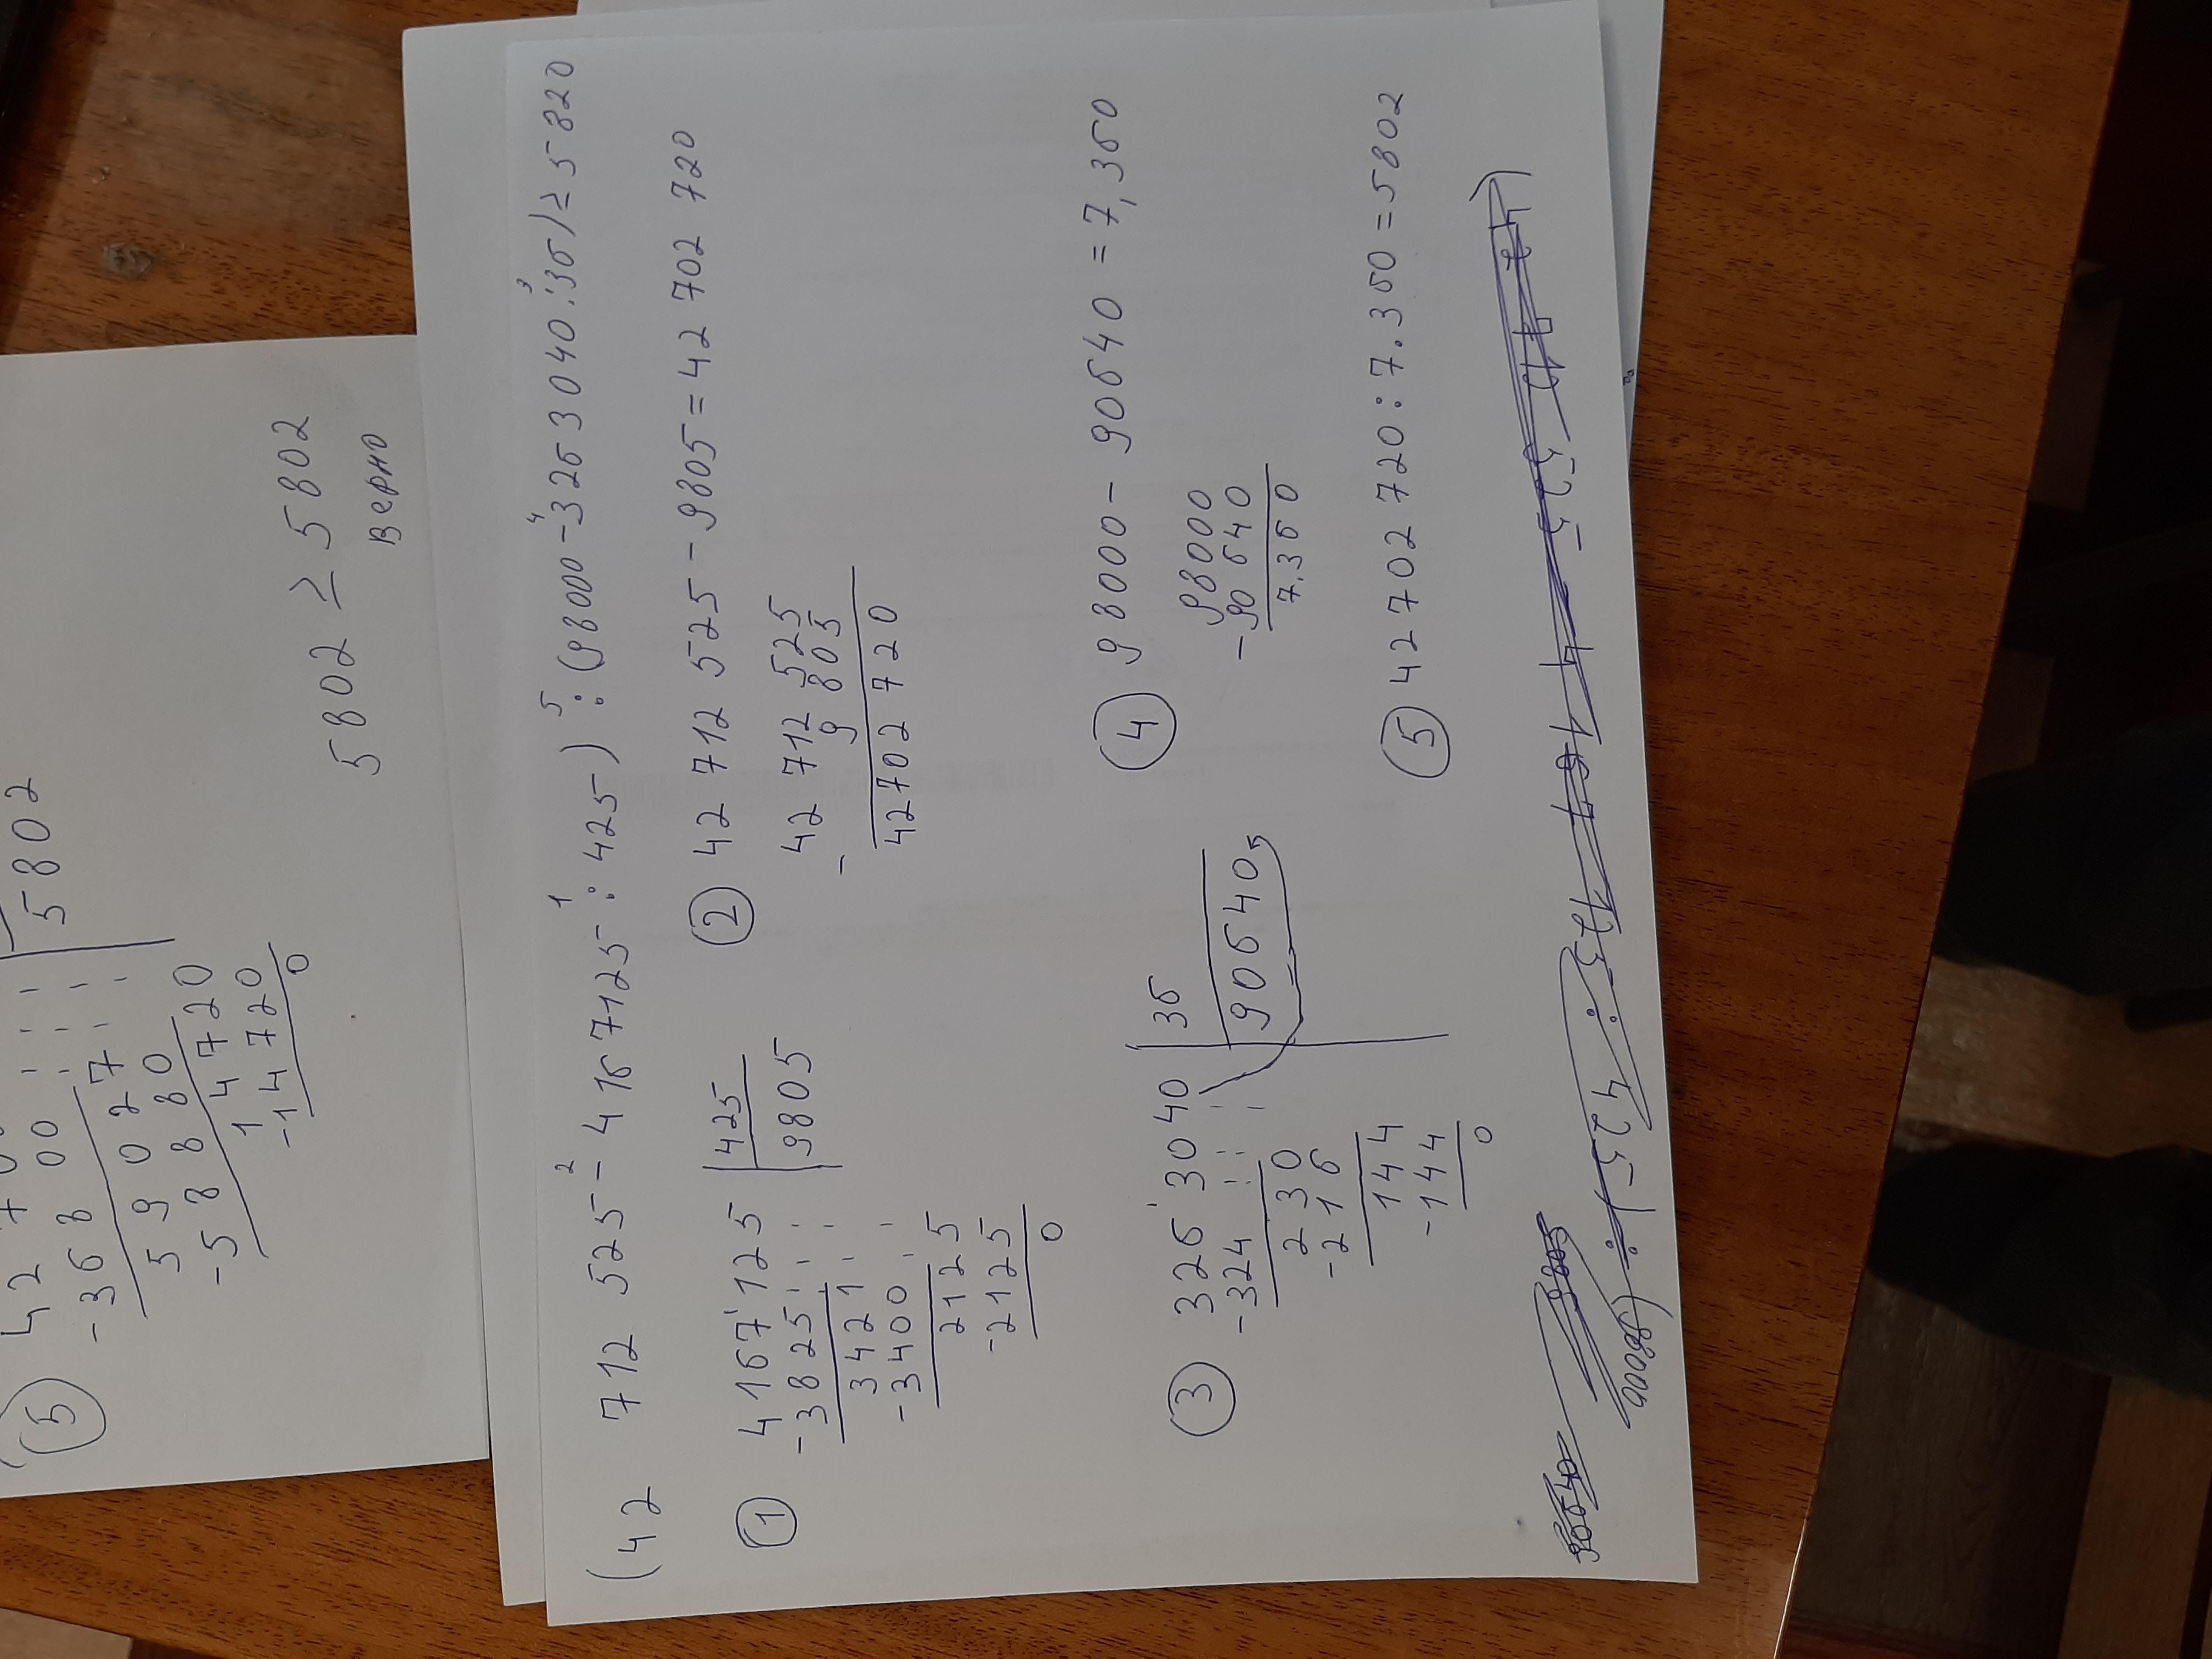 5
-368 00 5802
5 9 0 2 7
-5 8 8 8 0
1 4 7 2 0
-14 720
0
5802 ≥ 5802
верно
(42 712 525 -² 4 167125 :¹ 425) :⁵ (98000 -⁴ 3263040 :³ 36) ≥ 5820
① 4167125 | 425
-3825 9805
3421
-3400
2125
-2125
0
② 42 712 525 - 9805 = 42 702 720
- 42 712 525
9 805
42702 720
③ 3263040 | 36
-324 90640
230
-216
144
-144
0
④ 98000 - 90640 = 7,360
- 98000
90 640
7.360
⑤ 42702720 : 7.360 = 5802
: 425) : (98000